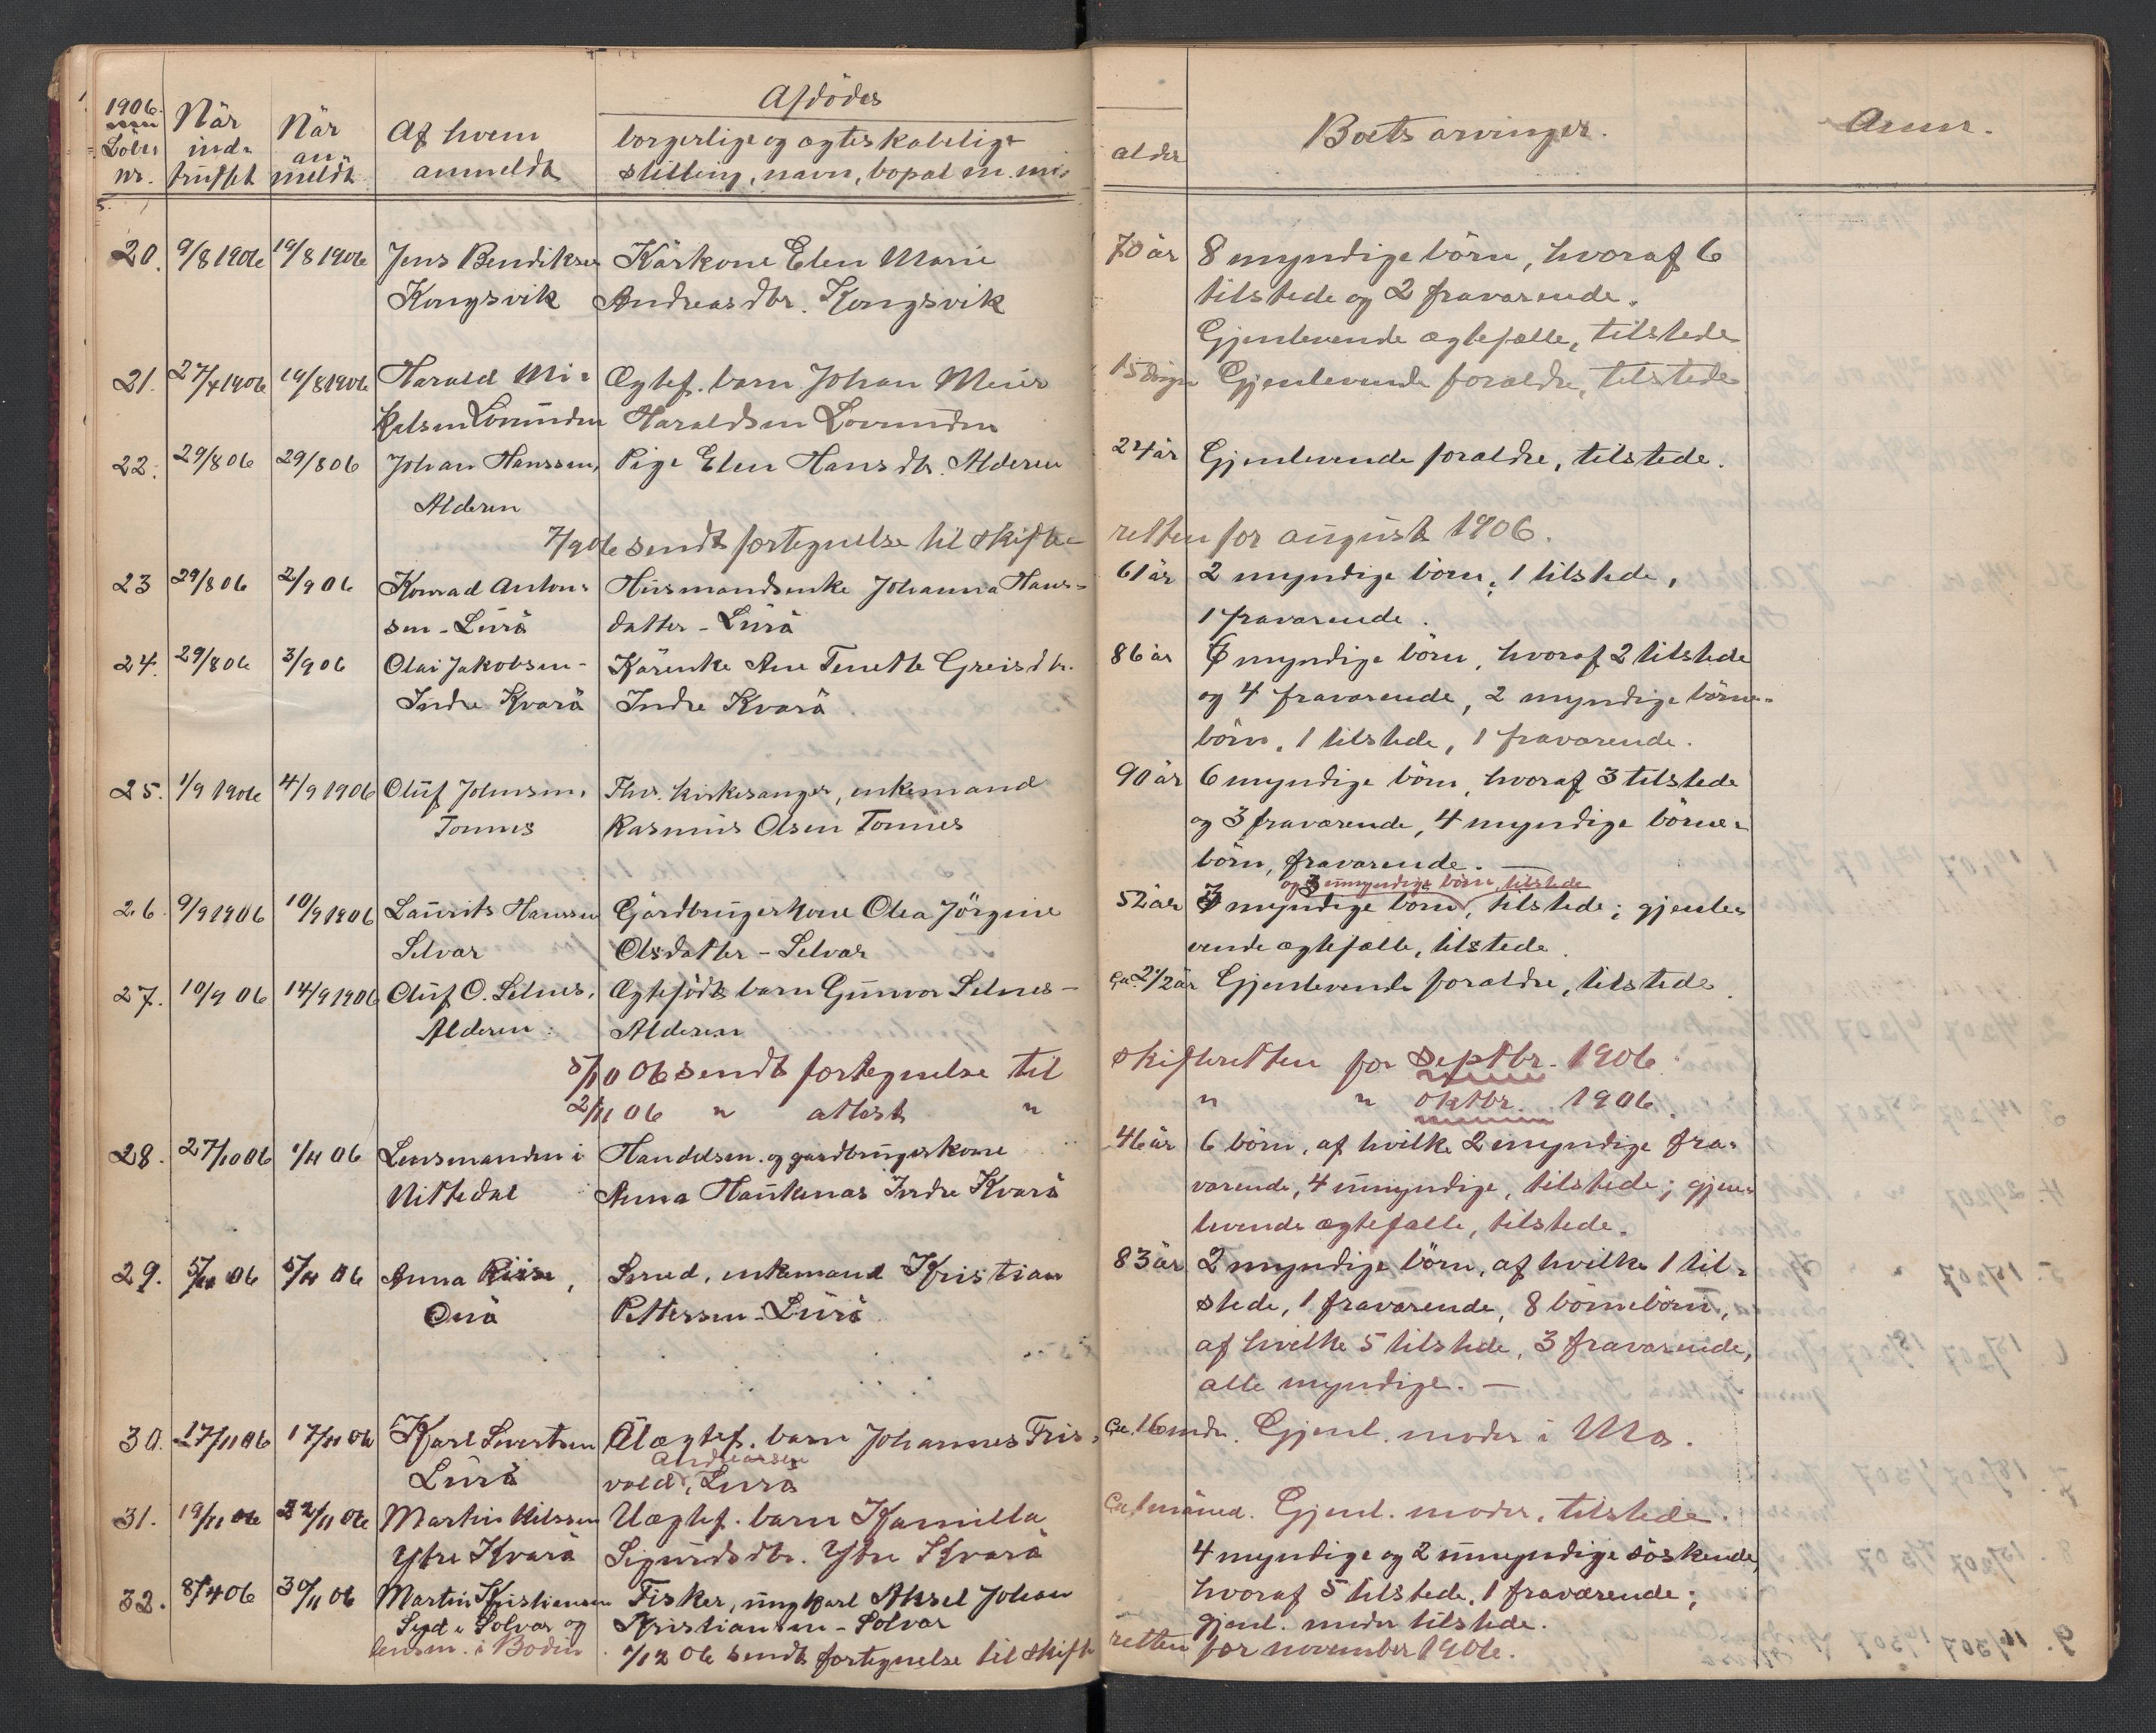 1906.
Löbe
nr.
När
ind-
truffet
När
an-
meldt
Af hvem
anmeldt
Afdödes
borgerlige og ægteskabelige
stilling, navn, bopæl m. m.
alder
Boets arvinger.
Anm.
20. 9/8 1906 19/8 1906 Jens Bendiksen Kårkone Elen Marie 70 år 8 myndige börn, hvoraf 6
Kongsvik Andreasdtr. Kongsvik tilstede og 2 fraværende.
Gjenlevende ægtefælle, tilstede
21. 27/4 1906 19/8 1906 Harald Mi- Ægtef. barn Johan Meier 15 dage Gjenlevende forældre, tilstede
kelsen Lovunden Haraldsen Lovunden
22. 29/8 06 29/8 06 Johan Hanssen, Pige Elen Hansdtr. Alderen 24 år Gjenlevende forældre, tilstede.
Alderen
7/9 06 sendt fortegnelse til skifte- retten for august 1906.
23 29/8 06 2/9 06 Konrad Anton- Husmandsenke Johanna Hans- 61 år 2 myndige börn, 1 tilstede,
sen - Lurö datter - Lurö 1 fraværende.
24. 29/8 06 3/9 06 Olai Jakobsen - Kårenke Ane Tenette Greisdtr. 86 år 6 myndige börn, hvoraf 2 tilstede
Indre Kvarö Indre Kvarö og 4 fraværende, 2 myndige börne-
börn, 1 tilstede, 1 fraværende.
25. 1/9 1906 4/9 1906 Oluf Johnsen, Fhv. kirkesanger, enkemand 90 år 6 myndige börn, hvoraf 3 tilstede
Tonnes Rasmus Olsen Tonnes og 3 fraværende, 4 myndige börne-
börn, fraværende. —
og 3 umyndige börn, tilstede
26. 9/9 1906 10/9 1906 Laurits Hanssen Gårdbrugerkone Olea Jörgine 52 år 3 myndige börn, tilstede; gjenle-
Selvær Olsdatter - Selvær vende ægtefælle, tilstede.
27. 10/9 06 14/9 1906 Oluf O. Selnes, Ægtefödt barn Gunvor Selnes - Ca. 2 1/2 år Gjenlevende forældre, tilstede.
Alderen Alderen
5/10 06 sendt fortegnelse til skifteretten for septbr. 1906.
2/11 06 " attest " " " oktbr. 1906.
28. 27/10 06 1/11 06 Lensmanden i Handelsm. og gårdbrugerkone 46 år 6 börn, af hvilke 2 myndige fra-
Nittedal Anna Haukenæs Indre Kvarö værende, 4 umyndige, tilstede; gjen-
levende ægtefælle, tilstede.
29. 5/11 06 5/11 06 Anna Riise, Smed, enkemand Kristian 83 år 2 myndige börn, af hvilke 1 til-
Onö Pettersen - Lurö stede, 1 fraværende, 8 börnebörn,
af hvilke 5 tilstede, 3 fraværende,
alle myndige. —
30. 17/11 06 17/11 06 Karl Sivertsen Uægtef. barn Johannes Fris- Ca. 16 mdr. Gjenl. moder i Mo.
Andreassen
Lurö vold, Lurö
31. 19/11 06 22/11 06 Martin Nilssen Uægtef. barn Kamilla Ca. 1 måned. Gjenl. moder, tilstede.
Ytre Kvarö Sigurdsdtr. Ytre Kvarö
4 myndige og 2 umyndige söskende,
32. 8/4 06 30/11 06 Martin Kristiansen Fisker, ungkarl Aksel Johan hvoraf 5 tilstede, 1 fraværende;
Syd i Solvær og Kristiansen - Solvær gjenl. moder tilstede.
lensm. i Bodin 1/12 06 sendt fortegnelse til skifte retten for november 1906.